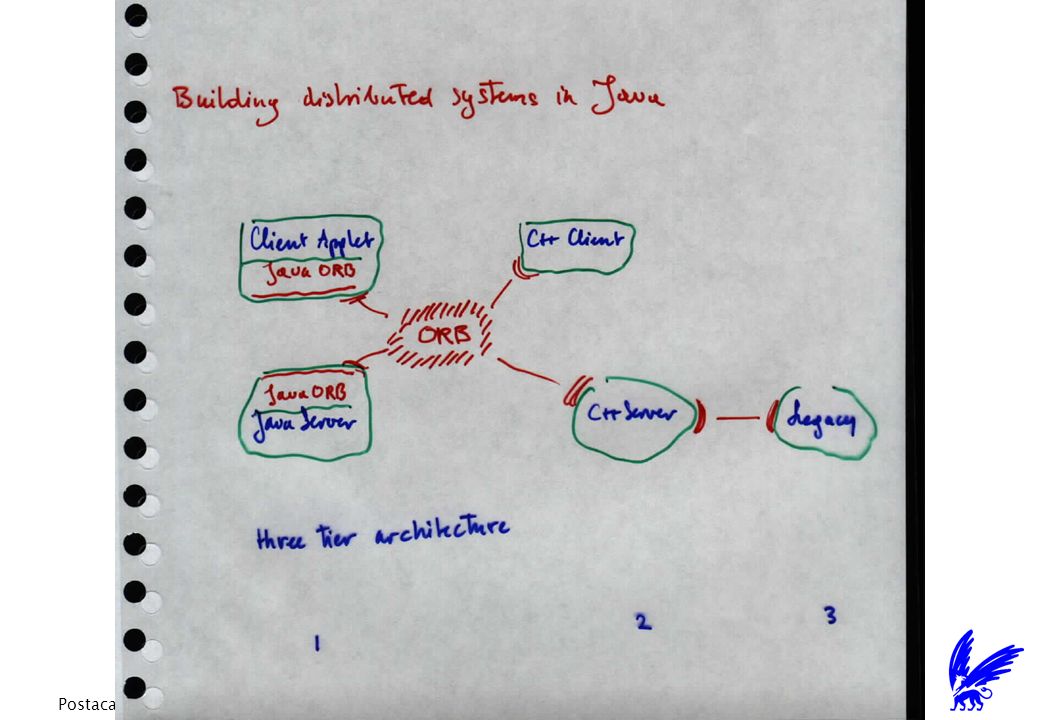 Building distributed systems in Java
Client Applet
Java ORB
C++ Client
ORB
Java ORB
Java Server
C++ Server
Legacy
three tier architecture
1
2
3
Postaca